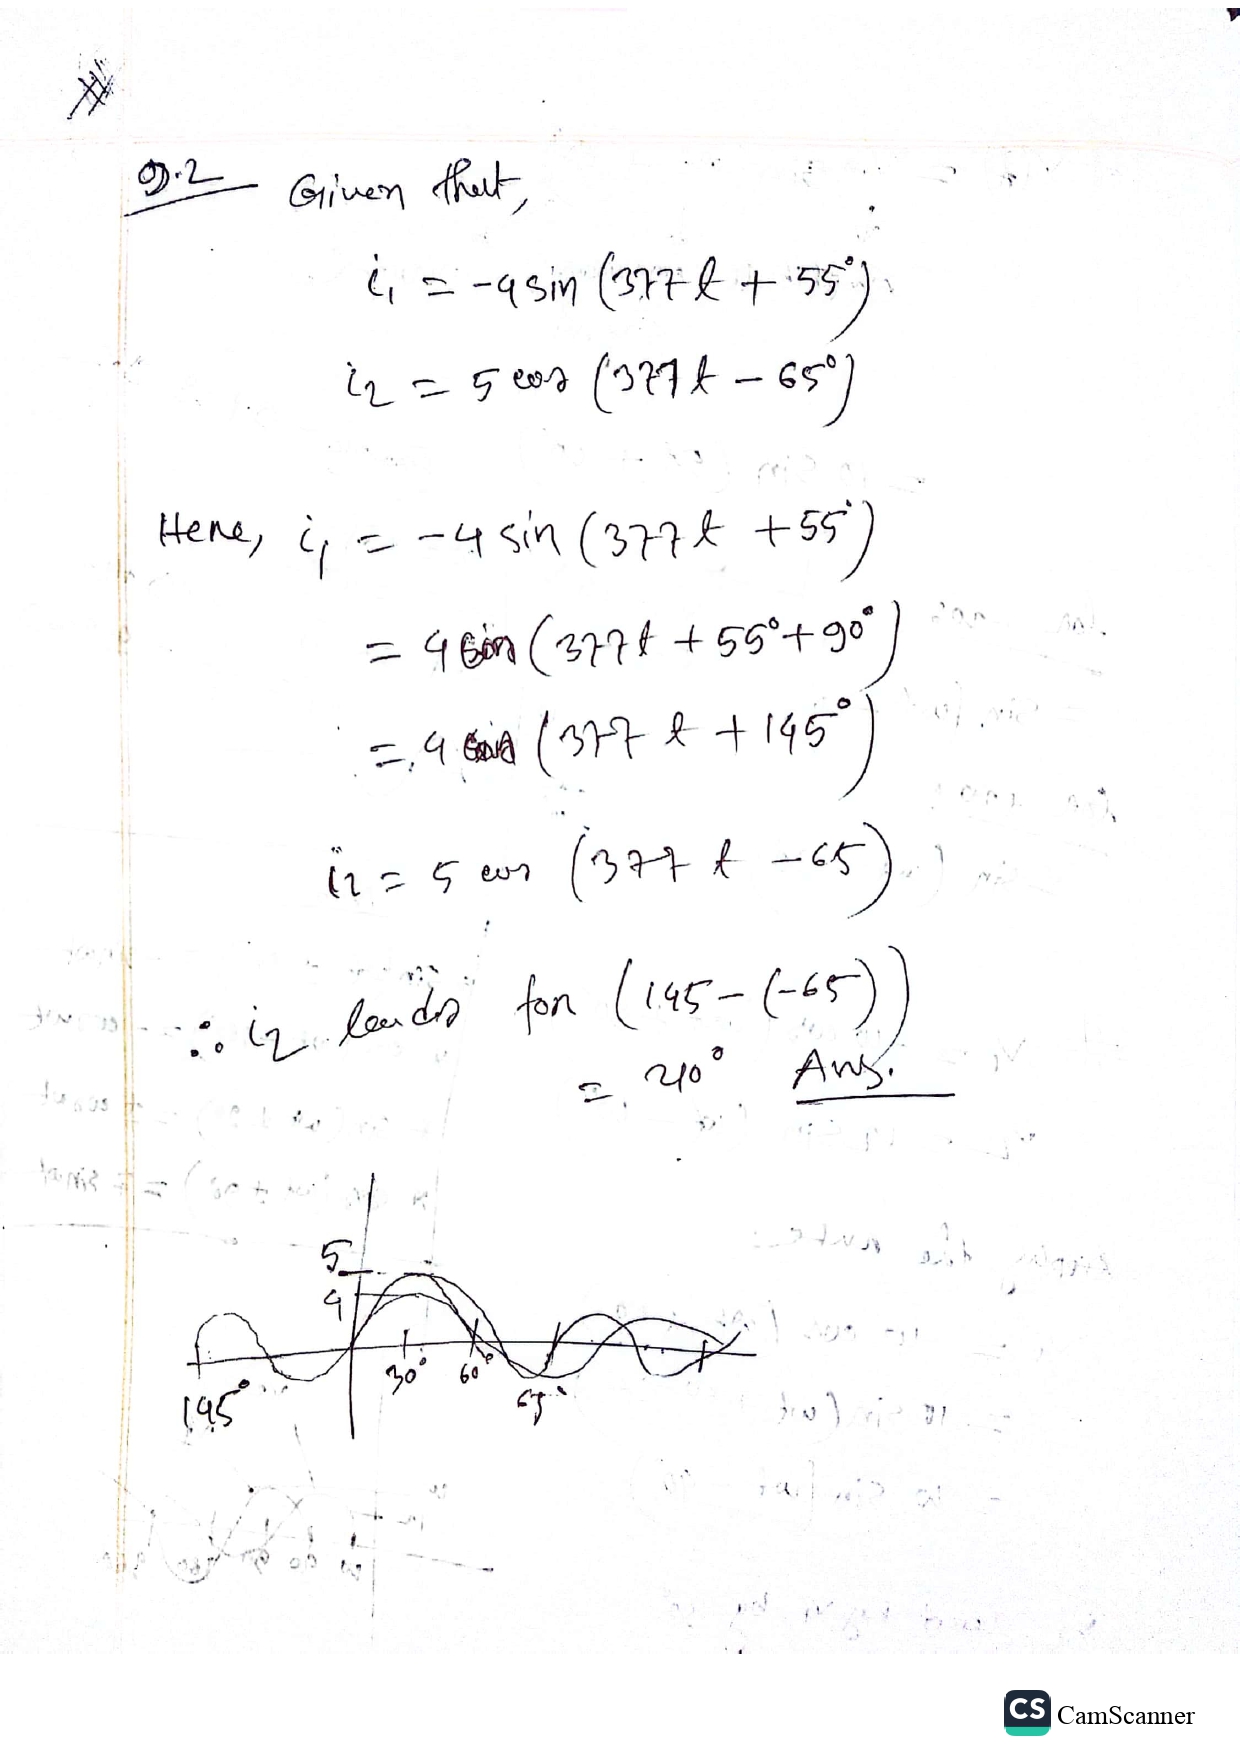 Q.2 Given that,
i₁ = -4 sin (377 t + 55°)
i₂ = 5 cos (377 t - 65°)
Here, i₁ = -4 sin (377 t + 55°)
= 4 cos (377 t + 55° + 90°)
= 4 cos (377 t + 145°)
i₂ = 5 cos (377 t - 65)
∴ i₂ leads for (145 - (-65))
= 210° Ans.
5
4
145° 30° 60° 65°
CS CamScanner